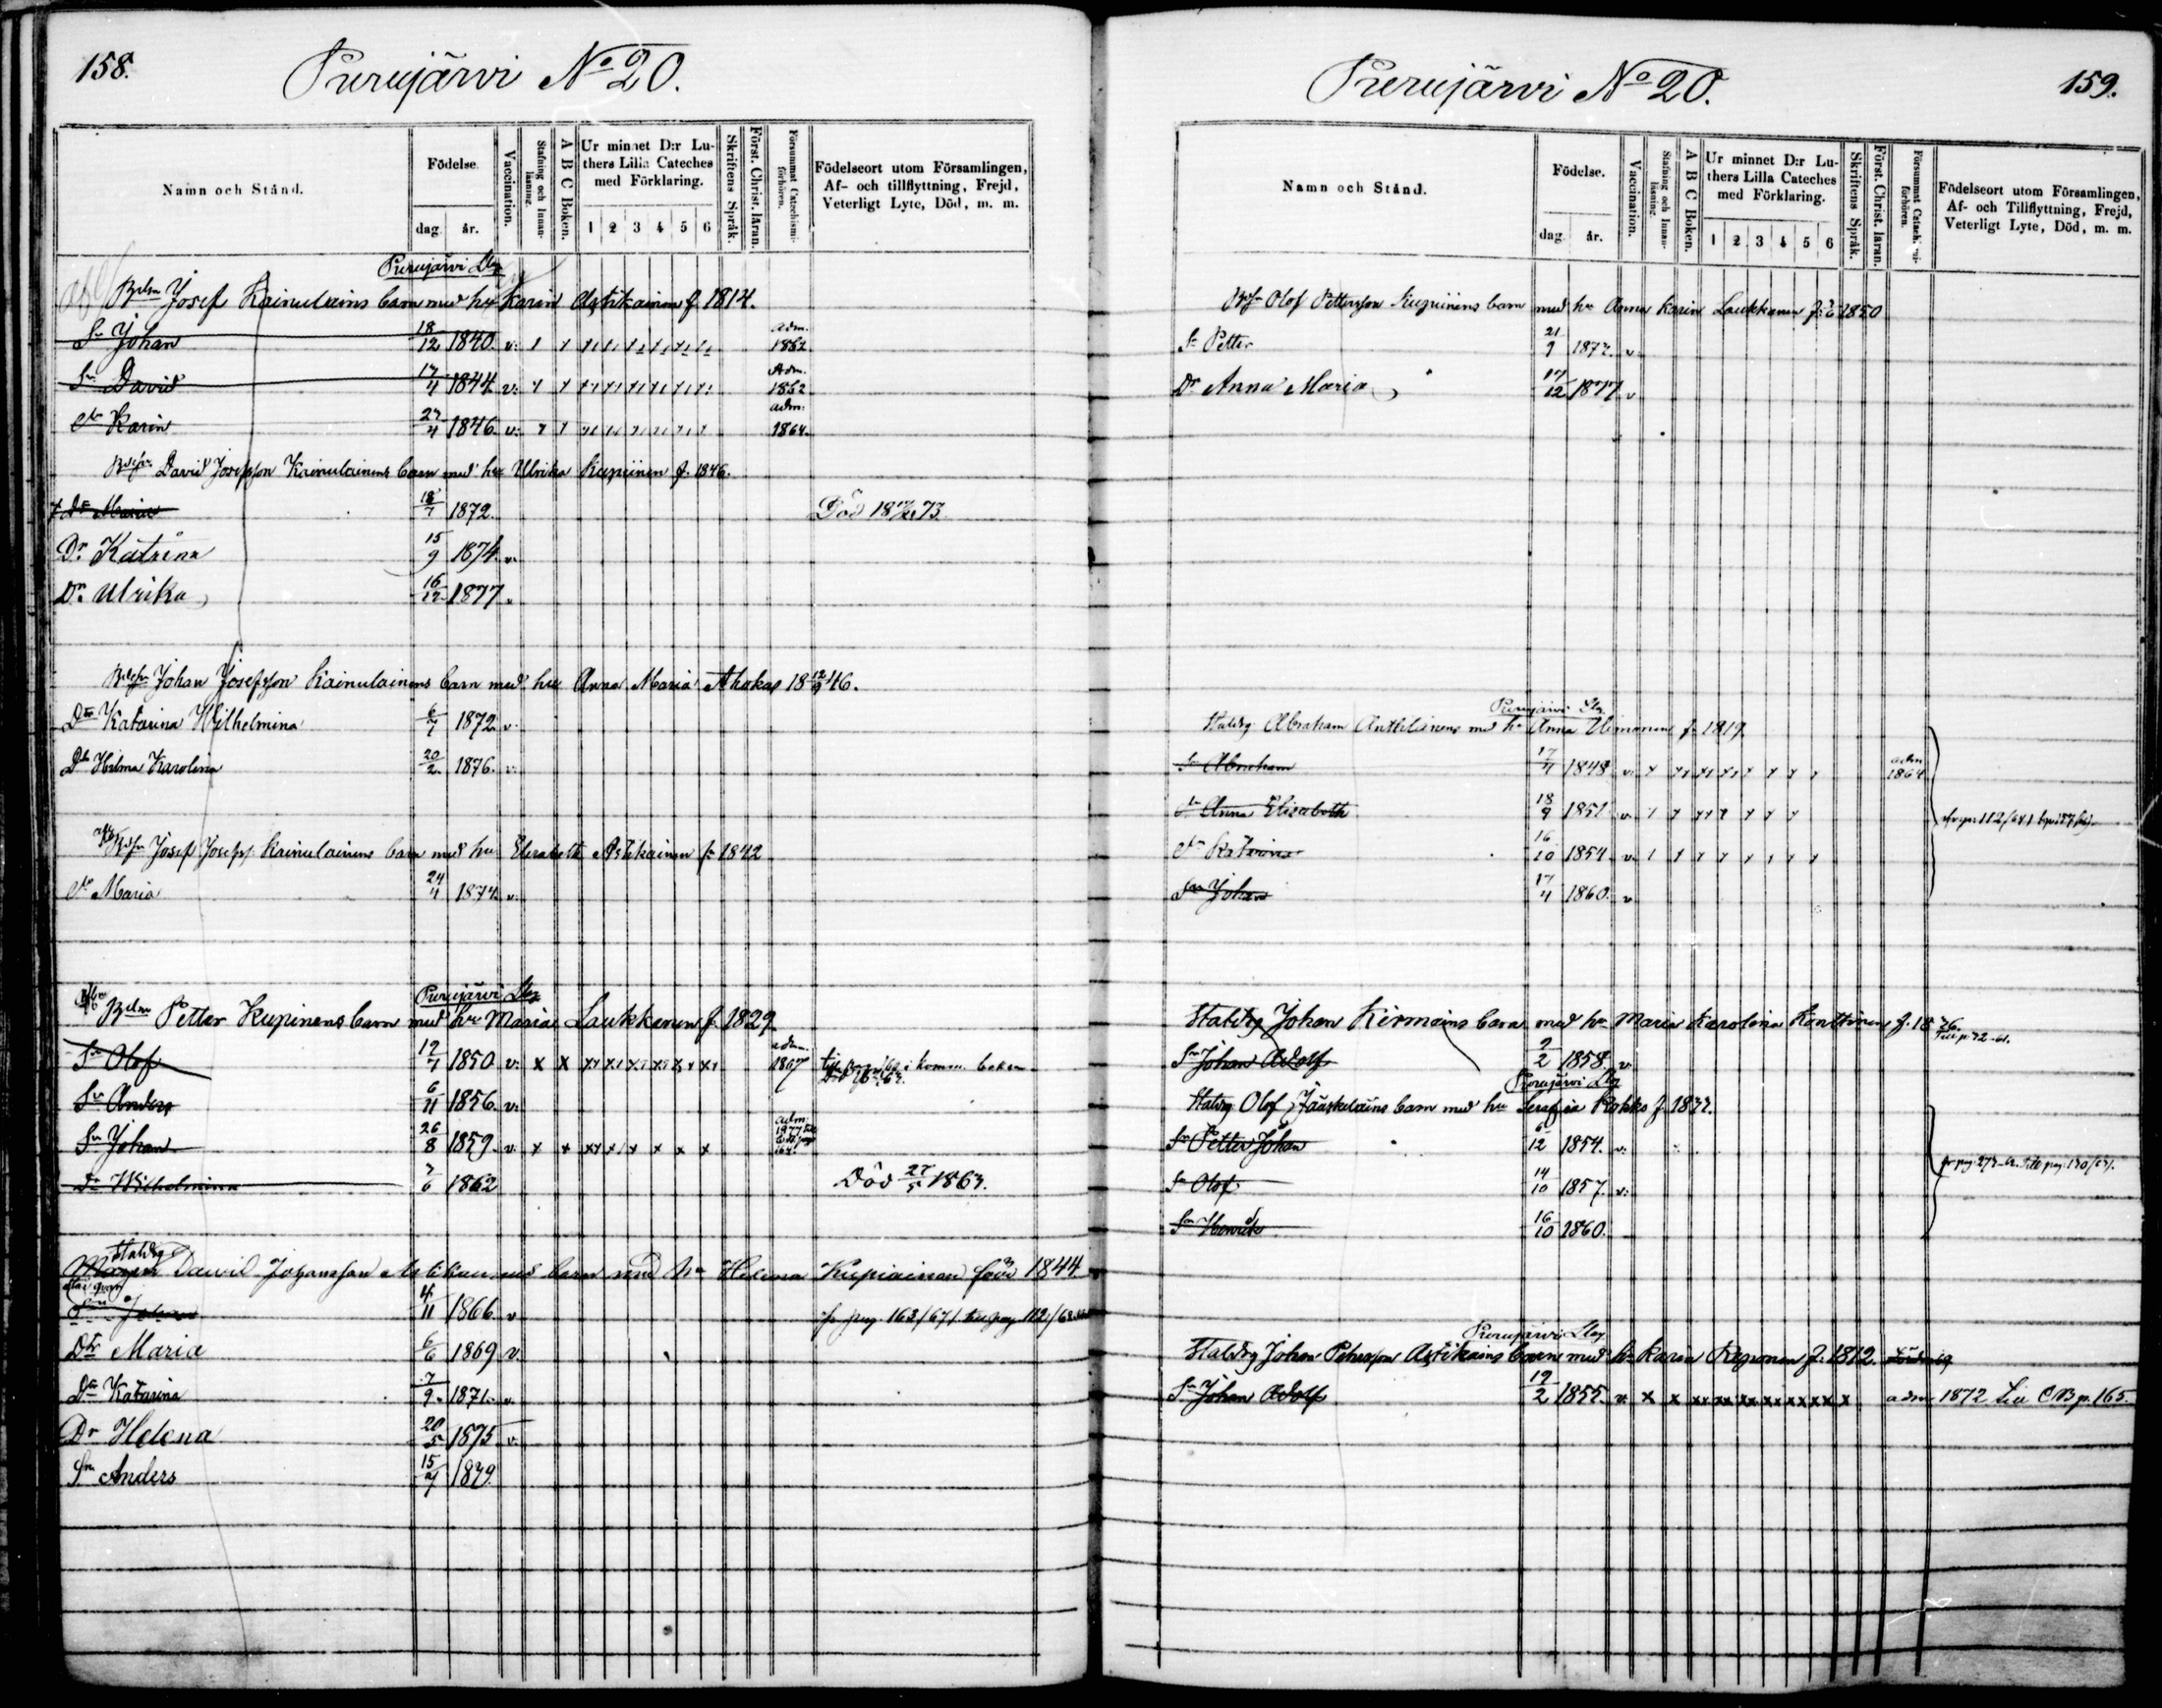 158.
Purujärvi No 20.
Namn och Stånd.
Födelse.
dag. år.
Vaccination.
Stafning och Innanläsning.
A B C Boken.
Ur minnet D:r Luthers Lilla Cateches med Förklaring.
1 2 3 4 5 6
Skriftens Språk.
Först. Christ. läran.
Försummat Catechismiförhören.
Födelseort utom Församlingen, Af- och tillflyttning, Frejd, Veterligt Lyte, Död, m. m.
Purujärvi
Josef Kainulains barn med hu Karin Astikainen f. 1814.
Sn Johan 18/12 1840. v. adm. 1862
Sn David 17/4 1844. v. Adm. 1862
Dr Karin 27/4 1846. v. adm. 1864.
David Josefsson Kainulainens barn med hu Ulrika Kupiinen f. 1846.
Dr Maria 18/7 1872. Död 73.
Dr Katrina 15/9 1874. v.
Dr Ulrika 16/12 1877
Johan Josefsson Kainulainens barn med hu Anna Maria Ahokas 18 12/9 46.
Dtr Katarina Wilhelmina 6/7 1872 v.
Dtr Hilma Karolina 20/2 1876. v.
Josef Josefss. Kainulainens barn med hu Elisabeth Astikainen f. 1842
Maria 24/4 1874. v.
Purujärvi
Petter Kupinens barn med hu Maria Laukkanen f. 1829
Sn Olof 12/7 1850 v. adm. 1867 i komm. boken
Sn Anders 6/11 1856. v.
Sn Johan 26/8 1859. v. adm. 1877
Dr Wilhelmina 7/6 1862 Död 27/5 1863.
Staldrg David Johansson barn med hu Helena Kupiainen född 1844
Sn Johan 4/11 1866 v. fr pag. 163/67/ 112/
Dtr Maria 6/6 1869 v.
Dr Katarina 7/9 1871. v.
Dr Helena 20/5 1875 v.
Sn Anders 15/9 1879.
Purujärvi No 20.
159.
Namn och Stånd.
Födelse.
dag. år.
Vaccination.
Stafning och Innanläsning.
A B C Boken.
Ur minnet D:r Luthers Lilla Cateches med Förklaring.
1 2 3 4 5 6
Skriftens Språk.
Först. Christ. läran.
Försummat Catechismiförhören.
Födelseort utom Församlingen, Af- och Tillflyttning, Frejd, Veterligt Lyte, Död, m. m.
Olof Pettersson Kupiinens barn med hu Anna Karin Laukkanen f. 1850
Sn Petter 21/9 1872. v.
Dr Anna Maria 17/12 1877 v
Purujärvi
Staldrg Abraham med hu Anna f. 1819.
Sn Abraham 17/4 1848 v. adm 1864
Dr Anna Elisabeth 18/9 1851 v.
Dr Katarina 16/10 1854 v.
Sn Johan 17/4 1860. v
Staldrg Johan Kirmains barn med hu Maria Karolina Konttinen f. 18 26
Sn Johan Adolf 9/2 1858. v.
Purujärvi
Staldrg Olof Jääskeläins barn med hu Serafia Rokko f. 1832.
Sn Petter Johan 6/12 1854. v.
Sn Olof 14/10 1857. v.
Sn Henrik 16/10 1860.
Purujärvi
Staldrg Johan Petersson Astikains barn med hu Karin Kaponen f. 1812.
Sn Johan Adolf 19/2 1855. v. adm 1872 CB p. 165.